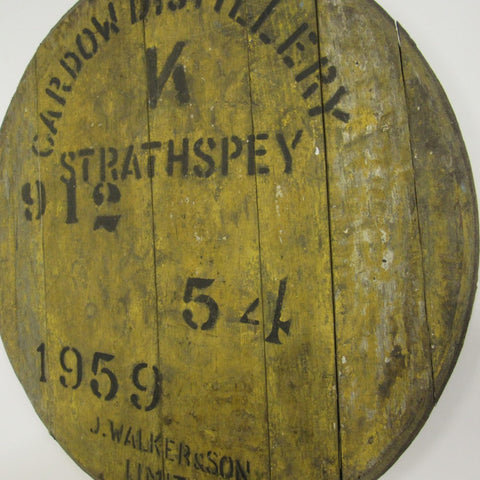 CARDOW DISTILLERY
K
STRATHSPEY
912
54
1959
J. WALKER & SON